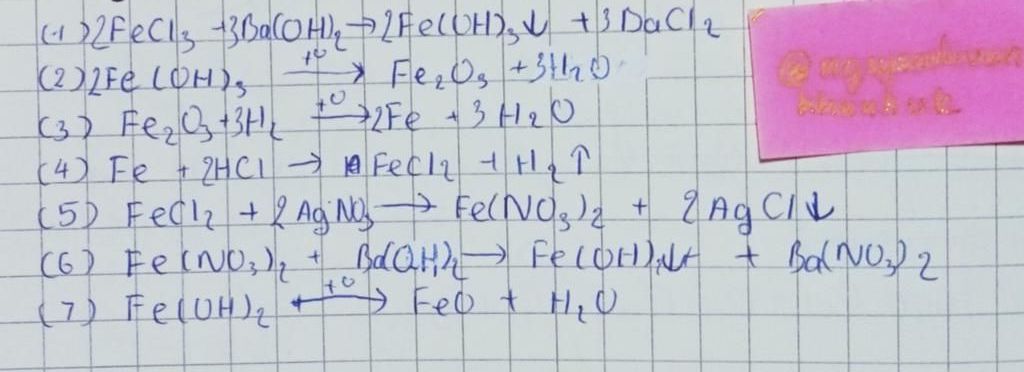 (1) 2FeCl3 + 3Ba(OH)2 → 2Fe(OH)3↓ + 3BaCl2
(2) 2Fe(OH)3 →t° Fe2O3 + 3H2O
(3) Fe2O3 + 3H2 →t° 2Fe + 3H2O
(4) Fe + 2HCl → FeCl2 + H2↑
(5) FeCl2 + 2AgNO3 → Fe(NO3)2 + 2AgCl↓
(6) Fe(NO3)2 + Ba(OH)2 → Fe(OH)2↓ + Ba(NO3)2
(7) Fe(OH)2 →t° FeO + H2O